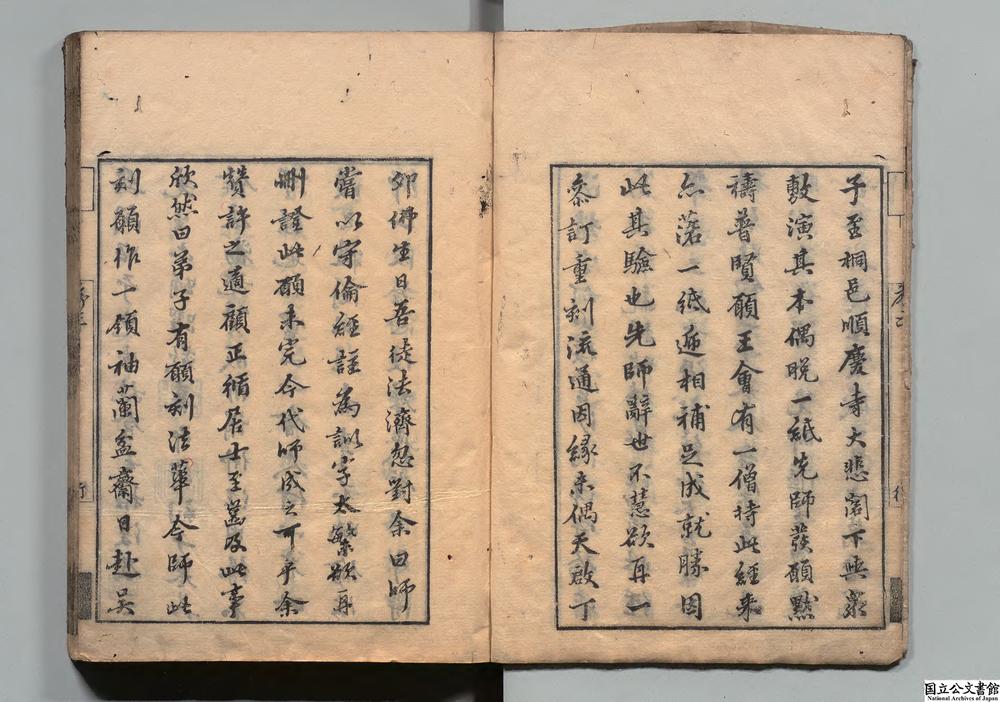 子至桐邑順慶寺大悲閣下與眾
敷演其本偶脫一紙先師發願默
禱普賢願王會有一僧持此經來
亦落一紙遞相補足成就勝因
此其驗也先師辭世不慧欲再一
叅訂重刻流通因緣未偶天啟丁
卯佛生日吾徒法濟忽對余曰師
嘗以守倫經註為訓字太繁欲再
刪證此願未完今代師成之可乎余
贊許之適顧正循居士至邕及此事
欣然曰弟子有願刻法華今師此
刻願作一領袖蘭盆齋日赴吳
国立公文書館
National Archives of Japan